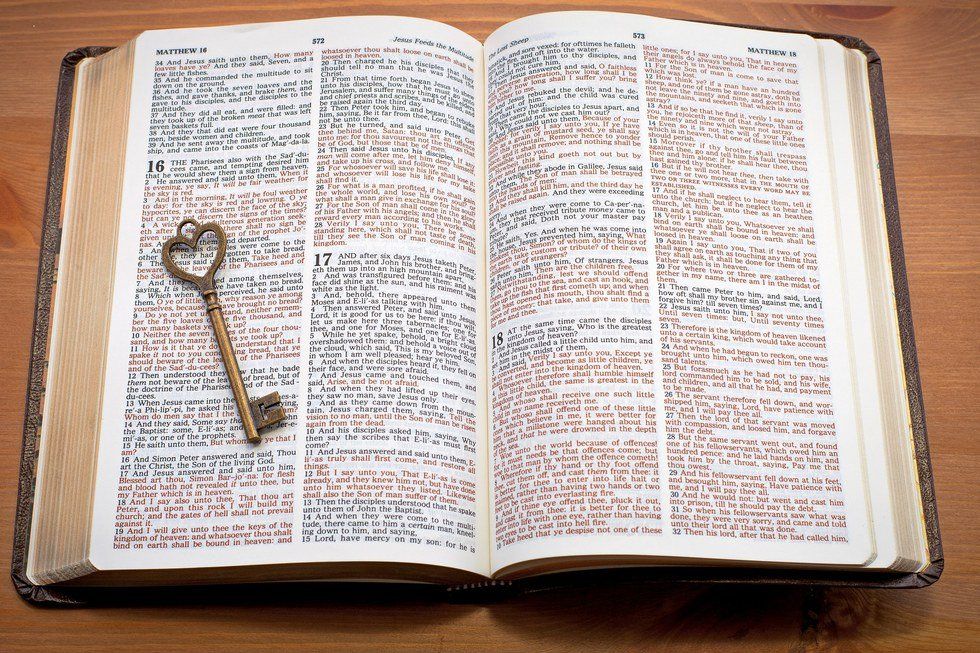 MATTHEW 16
572
Jesus Feeds the Multitude
34 And Jesus saith unto them, How many
loaves have ye? And they said, Seven, and a
few little fishes.
35 And he commanded the multitude to sit
down on the ground.
36 And he took the seven loaves and the
fishes, and gave thanks, and brake them, and
gave to his disciples, and the disciples to the
multitude.
37 And they did all eat, and were filled: and
they took up of the broken meat that was left
seven baskets full.
38 And they that did eat were four thousand
men, beside women and children.
39 And he sent away the multitude, and took
ship, and came into the coasts of Mag'-da-la.
16 THE Pharisees also with the Sad'-du-
cees came, and tempting desired him
that he would shew them a sign from heaven.
2 He answered and said unto them, When it
is evening, ye say, It will be fair weather: for
the sky is red.
3 And in the morning, It will be foul weather
to day: for the sky is red and lowring. O ye
hypocrites, ye can discern the face of the sky;
but can ye the signs of the times?
4 A generation seek-
there shall no sign be
of the prophet Jo'-
and departed.
disciples were come to the
forgotten to take bread.
said unto them, Take heed and
of the Pharisees and of
among themselves,
have taken no bread.
8 Which when perceived, he said unto
them, O ye of reason ye among
yourselves, because brought no bread?
9 Do ye not yet understand, neither remember
the five loaves of the five thousand, and
how many baskets ye took up?
10 Neither the seven loaves of the four thou-
sand, and how many
11 How is it that ye do not understand that I
spake it not to you concerning bread, that ye
should beware of the leaven of the Pharisees
and of the Sad'-du-cees?
12 Then understood they how that he bade
them not beware of the leaven of bread, but of
the doctrine of the Pharisees and of the Sad'-
du-cees.
13 When Jesus came into the coasts of
re'-a Phi-lip'-pi, he asked his disciples,
Whom do men say that I
14 And they said, Some say
the Baptist: some, E-li'-as; and
mi'-as, or one of the prophets.
15 He saith unto them, But whom say ye that I
am?
16 And Simon Peter answered and said, Thou
art the Christ, the Son of the living God.
17 And Jesus answered and said unto him,
Blessed art thou, Simon Bar-jo'-na: for flesh
and blood hath not revealed it unto thee, but
my Father which is in heaven.
18 And I say also unto thee, That thou art
Peter, and upon this rock I will build my
church; and the gates of hell shall not prevail
against it.
19 And I will give unto thee the keys of the
kingdom of heaven: and whatsoever thou shalt
bind on earth shall be bound in heaven: and
whatsoever thou shalt loose on earth shall be
loosed in heaven.
20 Then charged he his disciples that they
should tell no man that he was Jesus the
Christ.
21 From that time forth began Jesus to shew
unto his disciples, how that he must go unto
Jerusalem, and suffer many things of the elders
and chief priests and scribes, and be killed, and
be raised again the third day.
22 Then Peter took him, and began to rebuke
him, saying, Be it far from thee, Lord: this shall
not be unto thee.
23 But he turned, and said unto Peter, Get
thee behind me, Satan: thou art an offence
unto me: for thou savourest not the things that
be of God, but those that be of men.
24 Then said Jesus unto his disciples, If any
man will come after me, let him deny himself,
and take up his cross, and follow me.
25 For whosoever will save his life shall lose it:
and whosoever will lose his life for my sake
shall find it.
26 For what is a man profited, if he shall gain
the whole world, and lose his own soul? or
what shall a man give in exchange for his soul?
27 For the Son of man shall come in the glory
of his Father with his angels; and then he shall
reward every man according to his works.
28 Verily I say unto you, There be some
standing here, which shall not taste of death,
till they see the Son of man coming in his
kingdom.
17 AND after six days Jesus taketh Peter,
James, and John his brother, and bring-
eth them up into an high mountain apart,
2 And was transfigured before them: and his
face did shine as the sun, and his raiment was
white as the light.
3 And, behold, there appeared unto them
Moses and E-li'-as talking with him.
4 Then answered Peter, and said unto Jesus,
Lord, it is good for us to be here: if thou wilt,
let us make here three tabernacles; one for
thee, and one for Moses, and one for E-li'-as.
5 While he yet spake, behold, a bright cloud
overshadowed them: and behold a voice out of
the cloud, which said, This is my beloved Son,
in whom I am well pleased; hear ye him.
6 And when the disciples heard it, they fell on
their face, and were sore afraid.
7 And Jesus came and touched them, and
said, Arise, and be not afraid.
8 And when they had lifted up their eyes,
they saw no man, save Jesus only.
9 And as they came down from the moun-
tain, Jesus charged them, saying, Tell the
vision to no man, until the Son of man be risen
again from the dead.
10 And his disciples asked him, saying, Why
then say the scribes that E-li'-as must first
come?
11 And Jesus answered and said unto them, E-
li'-as truly shall first come, and restore all
things.
12 But I say unto you, That E-li'-as is come
already, and they knew him not, but have done
unto him whatsoever they listed. Likewise
shall also the Son of man suffer of them.
13 Then the disciples understood that he spake
unto them of John the Baptist.
14 And when they were come to the multi-
tude, there came to him a certain man, kneel-
ing down to him, and saying,
15 Lord, have mercy on my son: for he is
Lost Sheep
573
MATTHEW 18
and sore vexed: for ofttimes he falleth
fire, and oft into the water.
brought him to thy disciples, and
not cure him.
Jesus answered and said, O faithless
generation, how long shall I be
how long shall I suffer you? bring
to me.
Jesus rebuked the devil; and he de-
out of him: and the child was cured
hour.
came the disciples to Jesus apart, and
could not we cast him out?
said unto them, Because of your
verily I say unto you, If ye have
of mustard seed, ye shall say
Remove hence to yonder
it shall remove; and nothing shall be
unto you.
this kind goeth not out but by
fasting.
while they abode in Galilee, Jesus said
The Son of man shall be betrayed
hands of men:
they shall kill him, and the third day he
raised again. And they were exceeding
And when they were come to Ca-per'-na-
they that received tribute money came to
said, Doth not your master pay
He saith, Yes. And when he was come into
Jesus prevented him, saying, What
Simon? of whom do the kings of
take custom or tribute? of their own
of strangers?
Peter saith unto him, Of strangers. Jesus
unto him, Then are the children free.
Notwithstanding, lest we should offend
go thou to the sea, and cast an hook, and
up the fish that first cometh up; and when
hast opened his mouth, thou shalt find
money: that take, and give unto them
me and thee.
18 AT the same time came the disciples
unto Jesus, saying, Who is the greatest
kingdom of heaven?
And Jesus called a little child unto him, and
him in the midst of them,
And said, Verily I say unto you, Except ye
be converted, and become as little children, ye
not enter into the kingdom of heaven.
Whosoever therefore shall humble himself
this little child, the same is greatest in the
kingdom of heaven.
And whoso shall receive one such little
child in my name receiveth me.
But whoso shall offend one of these little
which believe in me, it were better for
him that a millstone were hanged about his
neck, and that he were drowned in the depth
Woe unto the world because of offences!
it must needs be that offences come; but
to that man by whom the offence cometh!
Wherefore if thy hand or thy foot offend
cut them off, and cast them from thee: it
better for thee to enter into life halt or
rather than having two hands or two
to be cast into everlasting fire.
And if thine eye offend thee, pluck it out,
and cast it from thee: it is better for thee to
enter into life with one eye, rather than having
two eyes to be cast into hell fire.
Take heed that ye despise not one of these
little ones; for I say unto you, That in heaven
their angels do always behold the face of my
Father which is in heaven.
11 For the Son of man is come to save that
which was lost.
12 How think ye? if a man have an hundred
sheep, and one of them be gone astray, doth he
not leave the ninety and nine, and goeth into
the mountains, and seeketh that which is gone
astray?
13 And if so be that he find it, verily I say unto
you, he rejoiceth more of that sheep, than of
the ninety and nine which went not astray.
14 Even so it is not the will of your Father
which is in heaven, that one of these little ones
should perish.
15 Moreover if thy brother shall trespass
against thee, go and tell him his fault between
thee and him alone: if he shall hear thee, thou
hast gained thy brother.
16 But if he will not hear thee, then take with
thee one or two more, that IN THE MOUTH OF
TWO OR THREE WITNESSES EVERY WORD MAY BE
ESTABLISHED.
17 And if he shall neglect to hear them, tell it
unto the church: but if he neglect to hear the
church, let him be unto thee as an heathen
man and a publican.
18 Verily I say unto you, Whatsoever ye shall
bind on earth shall be bound in heaven: and
whatsoever ye shall loose on earth shall be
loosed in heaven.
19 Again I say unto you, That if two of you
shall agree on earth as touching any thing that
they shall ask, it shall be done for them of my
Father which is in heaven.
20 For where two or three are gathered to-
gether in my name, there am I in the midst of
them.
21 Then came Peter to him, and said, Lord,
how oft shall my brother sin against me, and I
forgive him? till seven times?
22 Jesus saith unto him, I say not unto thee,
Until seven times: but, Until seventy times
seven.
23 Therefore is the kingdom of heaven likened
unto a certain king, which would take account
of his servants.
24 And when he had begun to reckon, one was
brought unto him, which owed him ten thou-
sand talents.
25 But forasmuch as he had not to pay, his
lord commanded him to be sold, and his wife,
and children, and all that he had, and payment
to be made.
26 The servant therefore fell down, and wor-
shipped him, saying, Lord, have patience with
me, and I will pay thee all.
27 Then the lord of that servant was moved
with compassion, and loosed him, and forgave
him the debt.
28 But the same servant went out, and found
one of his fellowservants, which owed him an
hundred pence: and he laid hands on him, and
took him by the throat, saying, Pay me that
thou owest.
29 And his fellowservant fell down at his feet,
and besought him, saying, Have patience with
me, and I will pay thee all.
30 And he would not: but went and cast him
into prison, till he should pay the debt.
31 So when his fellowservants saw what was
done, they were very sorry, and came and told
unto their lord all that was done.
32 Then his lord, after that he had called him,